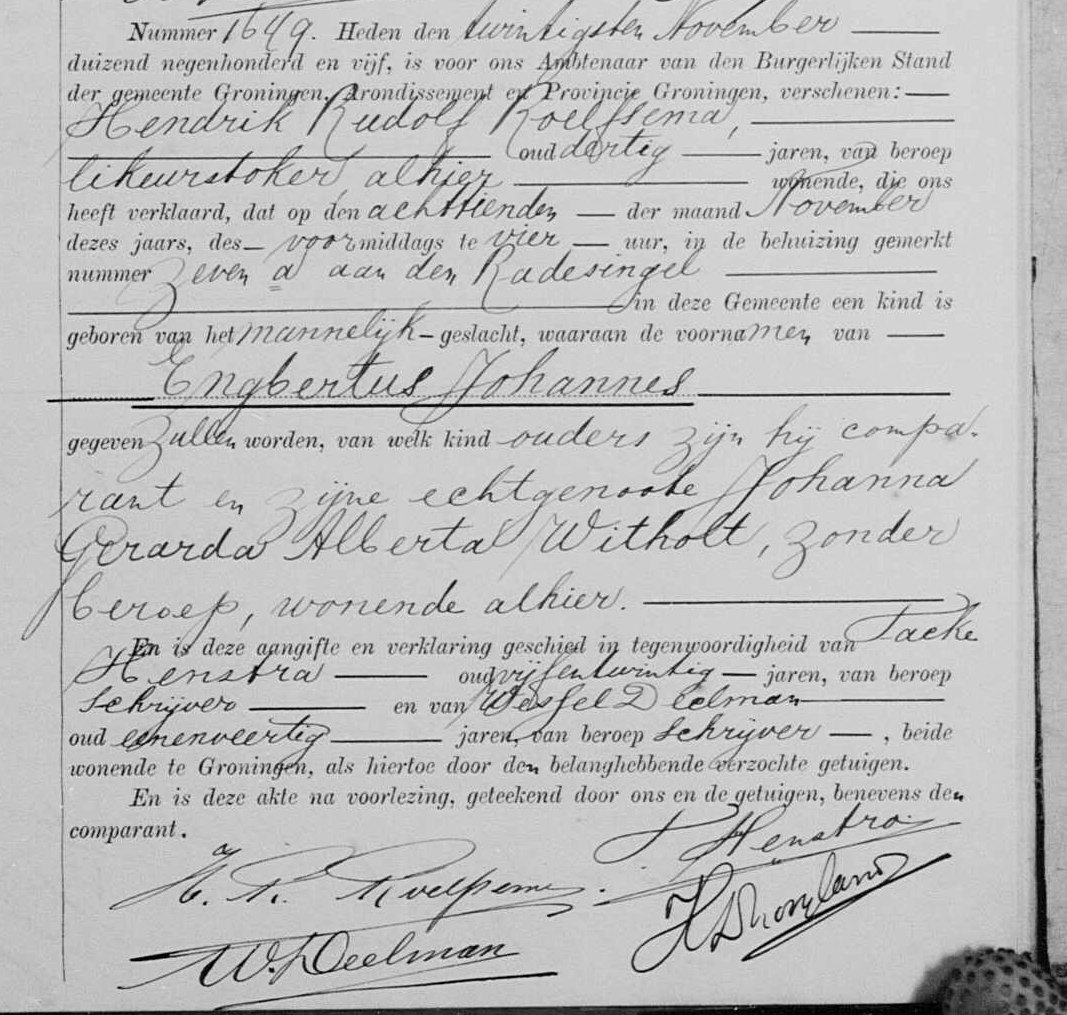 Nummer 1649. Heden den twintigsten November
duizend negenhonderd en vijf, is voor ons Ambtenaar van den Burgerlijken Stand
der gemeente Groningen, Arondissement en Provincie Groningen, verschenen:
Hendrik Rudolf Roelfsema,
oud dertig jaren, van beroep
likeurstoker, alhier wonende, die ons
heeft verklaard, dat op den achttienden der maand November
dezes jaars, des voormiddags te vier uur, in de behuizing gemerkt
nummer zeven a aan den Radesingel
in deze Gemeente een kind is
geboren van het mannelijk geslacht, waaraan de voornamen van
Engbertus Johannes
gegeven zullen worden, van welk kind ouders zijn hij compa-
rant en zijne echtgenoote Johanna
Gerarda Alberta Witholt, zonder
beroep, wonende alhier.
En is deze aangifte en verklaring geschied in tegenwoordigheid van Tacke
Henstra oud vijfentwintig jaren, van beroep
schrijver en van Wessel Deelman
oud eenenveertig jaren, van beroep schrijver, beide
wonende te Groningen, als hiertoe door den belanghebbende verzochte getuigen.
En is deze akte na voorlezing, geteekend door ons en de getuigen, benevens den
comparant.
T Henstra.
H. R. Roelfsema.
W. Deelman